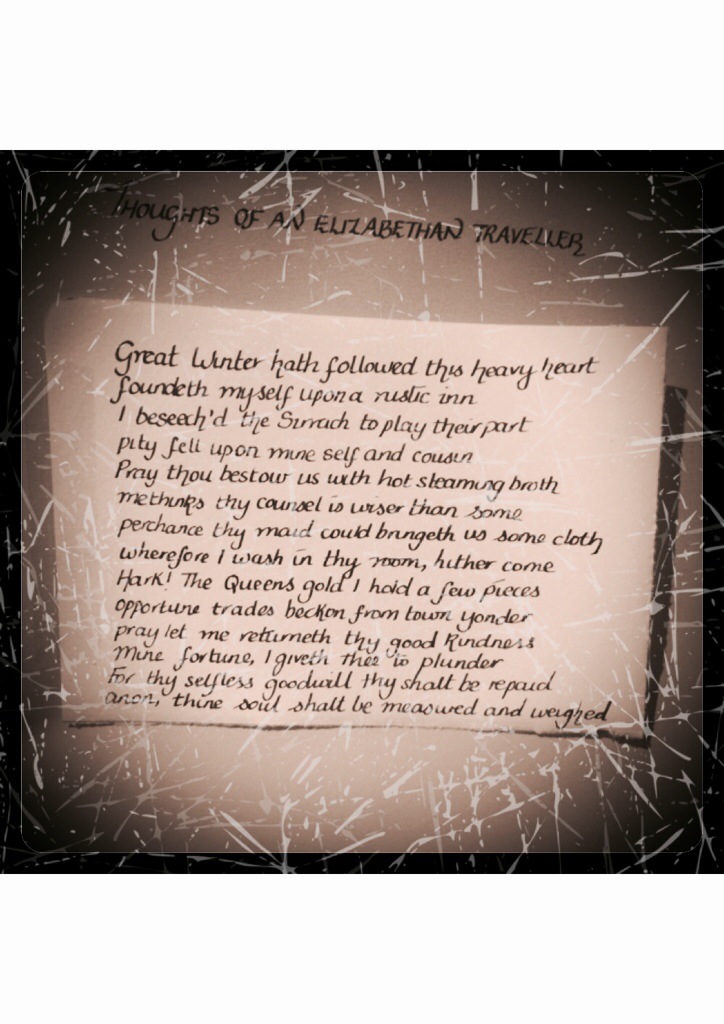 THOUGHTS OF AN ELIZABETHAN TRAVELLER
Great Winter hath followed this heavy heart
foundeth myself upon a rustic inn
I beseech'd the Sirrach to play their part
pity fell upon mine self and cousin
Pray thou bestow us with hot steaming broth
methinks thy counsel is wiser than some
perchance thy maid could bringeth us some cloth
wherefore I wash in thy room, hither come
Hark! The Queens gold I hold a few pieces
opportune trades beckon from town yonder
pray let me returneth thy good kindness
Mine fortune, I giveth thee to plunder
For thy selfless goodwill thy shalt be repaid
anon, thine soul shall be measured and weighed